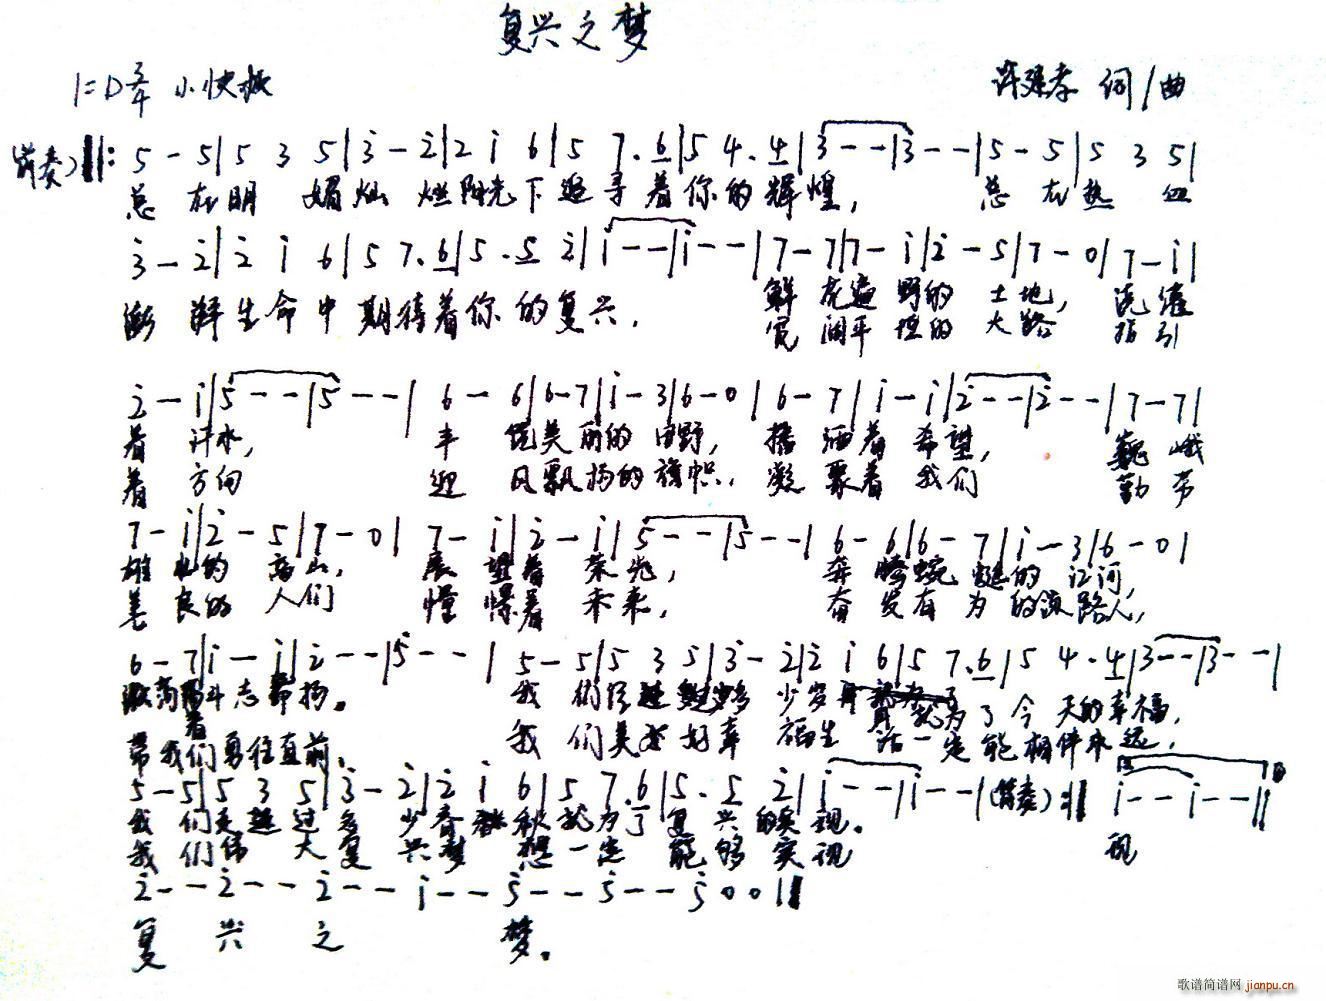 复兴之梦
1=D 3/4 小快板 许建孝 词/曲
(前奏) ‖: 5 - 5|5 3 5|3̇ - 2̇|2̇ i 6|5 7. 6|5 4. 4|3 - -|3 - -|5 - 5|5 3 5|
总 在明 媚灿 烂阳光下追寻着你的辉煌, 总 在热 血
3̇ - 2̇|2̇ i 6|5 7. 6|5. 5 2̇|i - -|i - -|7 - 7|7 - i|2̇ - 5|7 - 0|7 - i|
澎 湃生命中期待着你的复兴. 鲜 花遍 野的 土地, 浇 灌
宽 阔平 坦的 大路 指引
2̇ - i|5 - -|5 - -|6 - 6|6 - 7|i - 3|6 - 0|6 - 7|i - i|2̇ - -|2̇ - -|7 - 7|
着 汗水, 丰 饶美丽的 田野, 播 洒着 希望, 巍 峨
着 方向 迎 风飘扬的旗帜. 凝 聚着 我们 勤 劳
7 - i|2̇ - 5|7 - 0|7 - i|2̇ - i|5 - -|5 - -|6 - 6|6 - 7|i - 3|6 - 0|
雄 壮的 高山, 展 望着 荣光, 奔 腾蜿 蜒的 江河,
善 良的 人们 憧 憬着 未来, 奋 发有 为 的领路人,
6 - 7|i - i|2̇ - -|5 - -|5 - 5|5 3 5|3̇ - 2̇|2̇ i 6|5 7. 6|5 4. 4|3 - -|3 - -|
斗志昂扬。 我 们 少岁月 就为了今 天的幸福,
带我们勇往直前. 我 们美好幸 福生 活一定能相伴永远,
5 - 5|5 3 5|3̇ - 2̇|2̇ i 6|5 7. 6|5. 5 2̇|i - -|i - -|(伴奏):‖ i - - i - -‖
我 们走 过多 少春 秋就为了复 兴 的实现。
我 们伟 大复 兴梦 想一定 能 够 实现 现
2̇ - - 2̇ - - 2̇ - - i - - 5 - - 5 - - 5 0 0‖
复 兴 之 梦。
歌谱简谱网 jianpu.cn